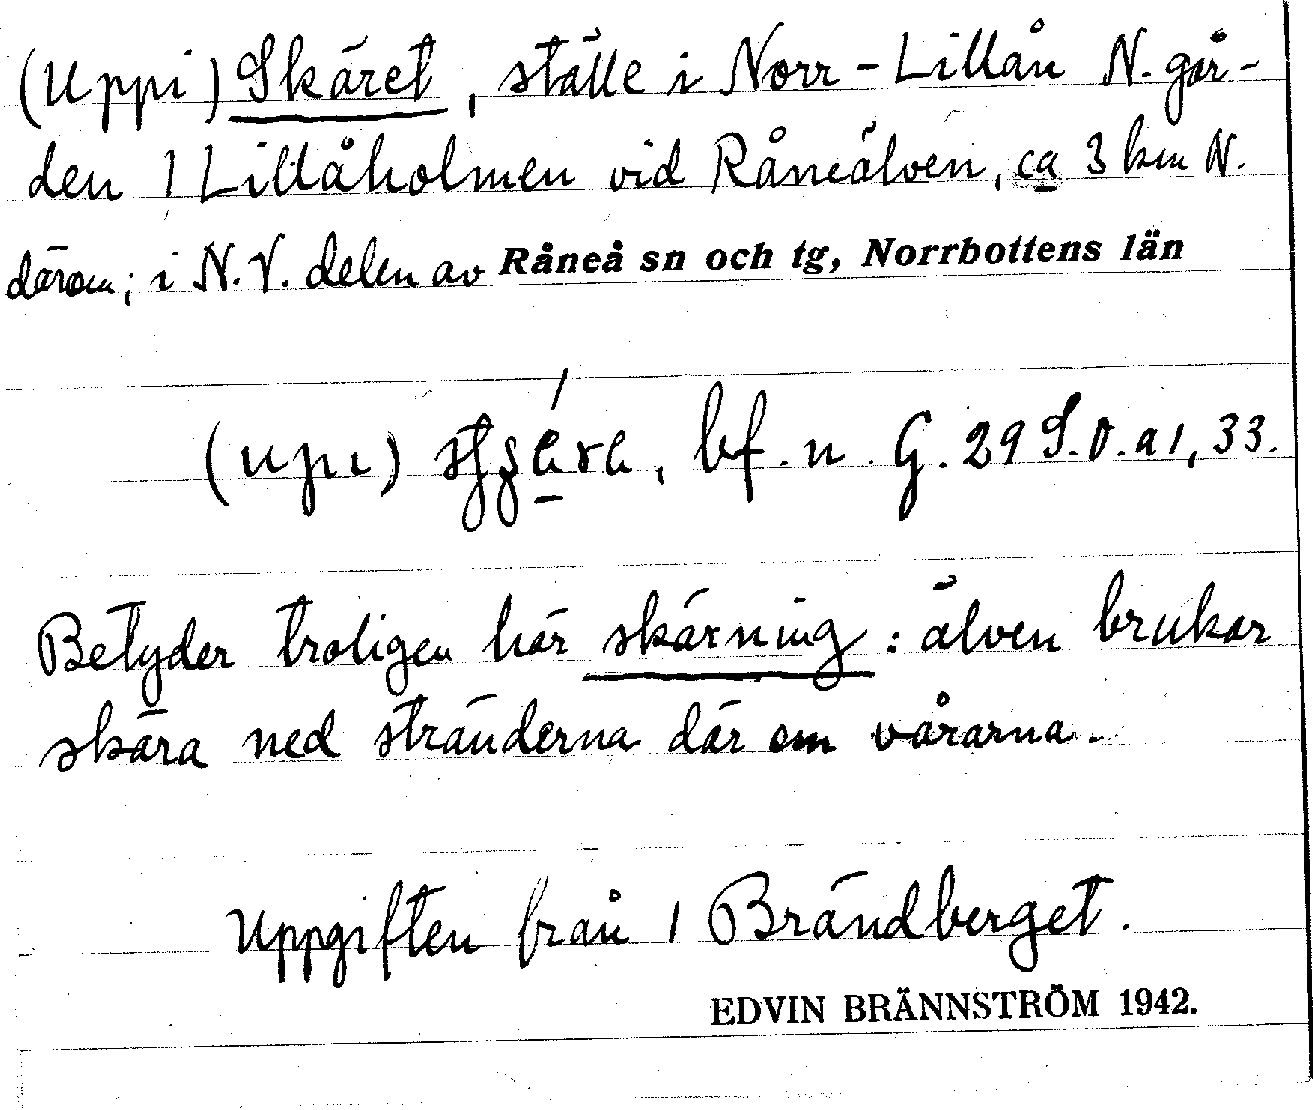 (Uppi) Skäret, ställe i Norr-Lillån N. går-
den 1 Lillåholmen vid Råneälven, ca 3 km N.
därom; i N.V. delen av Råneå sn och tg, Norrbottens län
(upı) bf. n. G. 29 S.O. a 1, 33.
Betyder troligen här skärning: älven brukar
skära ned stränderna där om vårarna.
Uppgiften från 1 Brändberget.
EDVIN BRÄNNSTRÖM 1942.